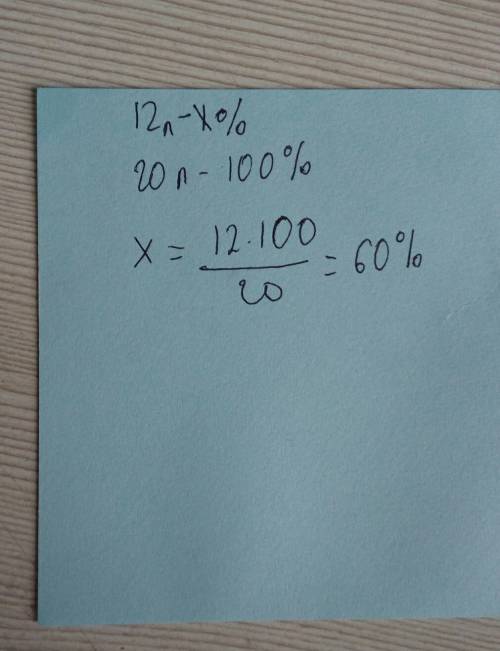 12л - x%
20 л - 100%
x = 12 · 100 / 20 = 60%